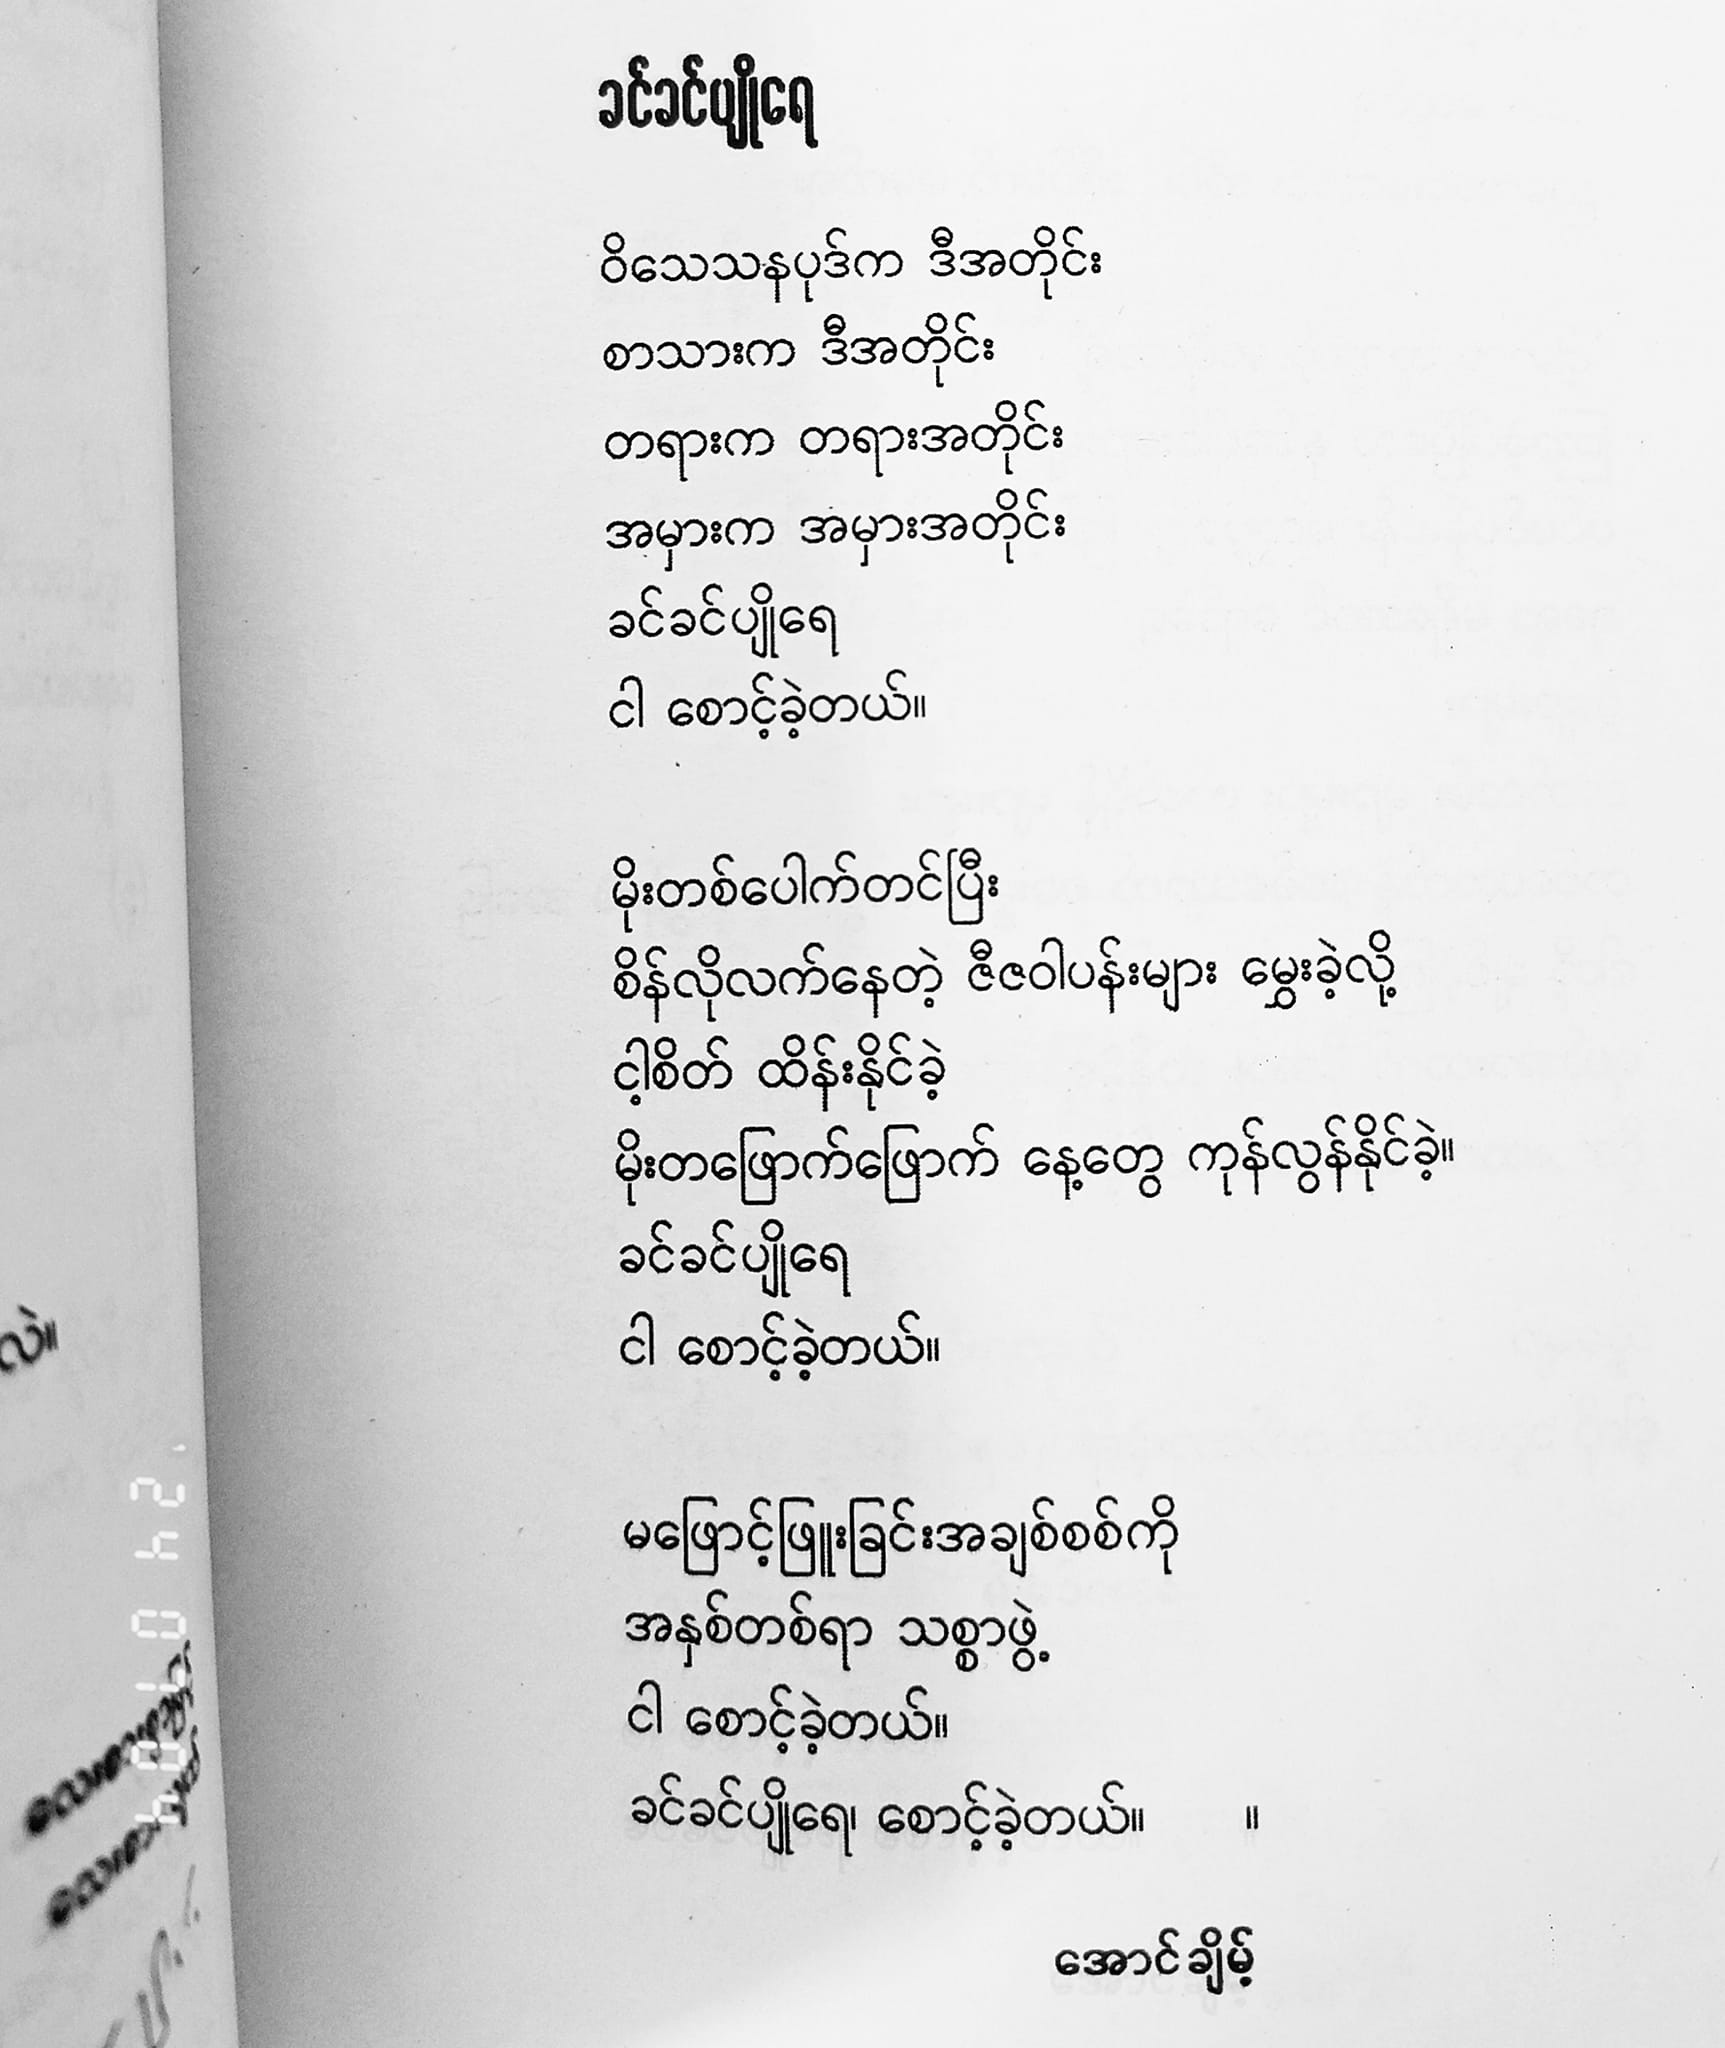 ခင်ခင်ပျိုရေ
ဝိသေသနပုဒ်က ဒီအတိုင်း
စာသားက ဒီအတိုင်း
တရားက တရားအတိုင်း
အမှားက အမှားအတိုင်း
ခင်ခင်ပျိုရေ
ငါ စောင့်ခဲ့တယ်။
မိုးတစ်ပေါက်တင်ပြီး
စိန်လိုလက်နေတဲ့ ဇီဇဝါပန်းများ မွှေးခဲ့လို့
ငါ့စိတ် ထိန်းနိုင်ခဲ့
မိုးတဖြောက်ဖြောက် နေ့တွေ ကုန်လွန်နိုင်ခဲ့။
ခင်ခင်ပျိုရေ
ငါ စောင့်ခဲ့တယ်။
မဖြောင့်ဖြူးခြင်းအချစ်စစ်ကို
အနှစ်တစ်ရာ သစ္စာဖွဲ့
ငါ စောင့်ခဲ့တယ်။
ခင်ခင်ပျိုရေ၊ စောင့်ခဲ့တယ်။ ။
အောင်ချိမ့်
လဲ။